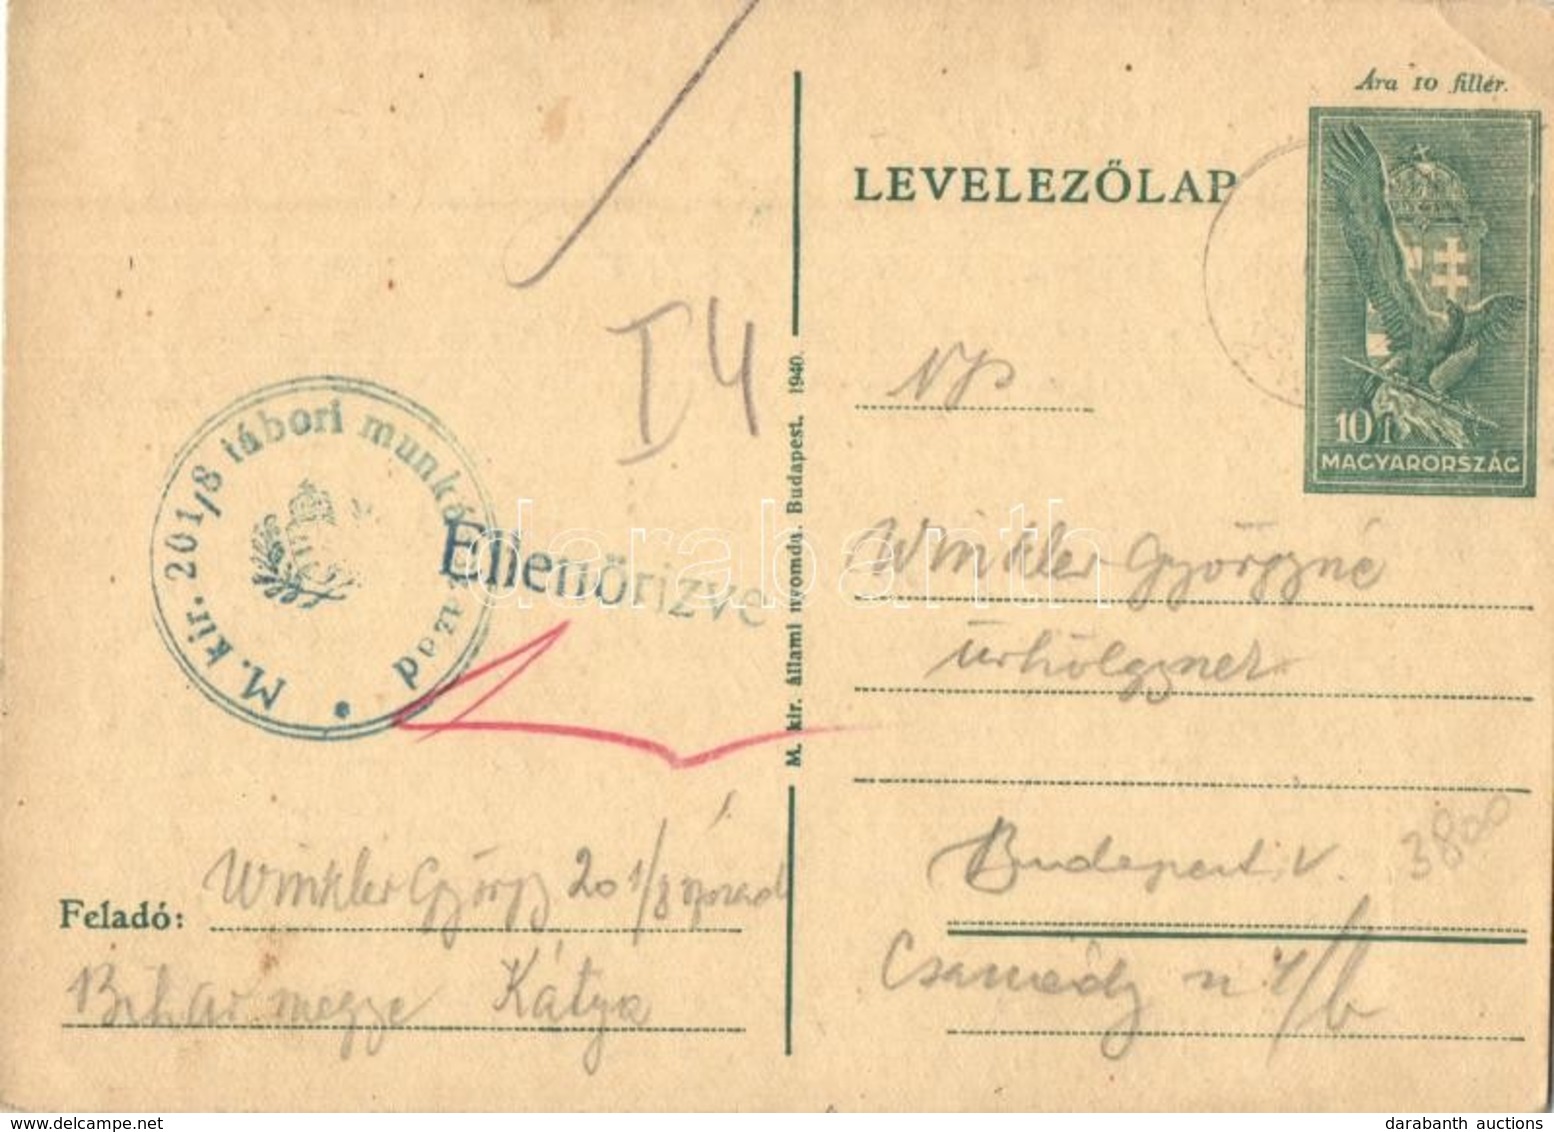 Ára 10 fillér.
LEVELEZŐLAP
10 f
MAGYARORSZÁG
I 4
M. kir. 201/8 tábori munkás század
Ellenőrizve
M. kir. állami nyomda. Budapest. 1940.
Winkler Györgyné
úrhölgynek
Budapest. V.
3800
Feladó: Winkler György 201/8 század
Biharmegye Kátya
darabanth
darabanth auctions